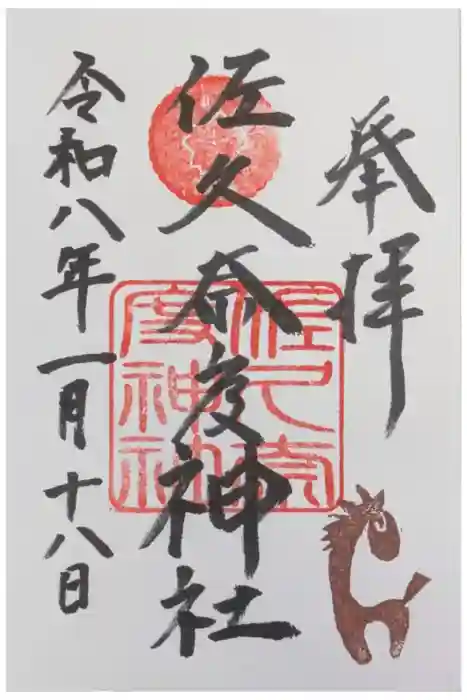 奉拝
佐久奈度神社
佐久奈
度神社
令和八年一月十八日